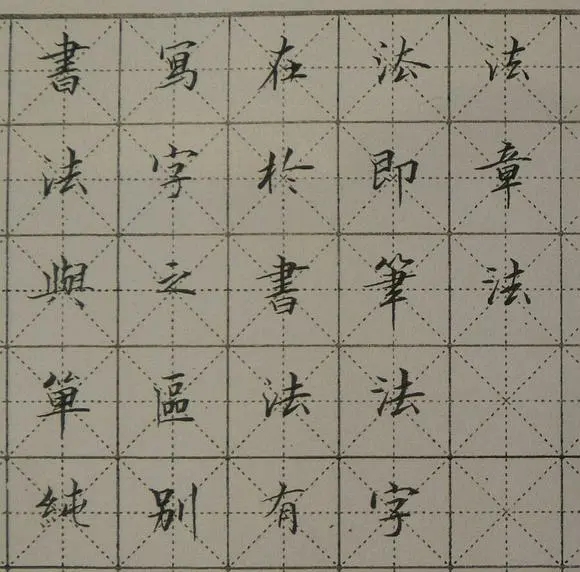 書法與單純
寫字之區別
在於書法有
法即筆法字
法章法